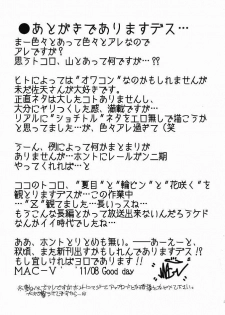 ●あとがきでありますデス…
まー色々とあって色々とアレなので
アレですが?
思うトコロ、山とあって何ですが…??
ヒトによっては“オワコン”なのかもしれませんが
未だ佐天さんが大好きです。
正直ネタは大したコトありませんし、
大分にギリっつくした感、満載ですが…
リアルに“ショチトル”ネタをエロ無しで直球で画こう
かと思ってましたが…、色々アレ過ぎて(笑
うーん、例によって何がまとまりが
ありませんが…ホントにレールガン二期
やってくれんか…??
ココのトコロ、“夏目”と“輪ピン”と“花咲く”を
観とりますデスが…この作業中
…“Z”観てました…長いっスね…
もうこんな長編とかって放送出来ないんだろうケド
なんかイイ時代でしたね…
ああ、ホントとりとめも無い。――あーえーと、
秋頃、また新刊出すかもしれんでありますデス!?
もし宜しければヨロであります!!
MAC-V '11/08 Good day